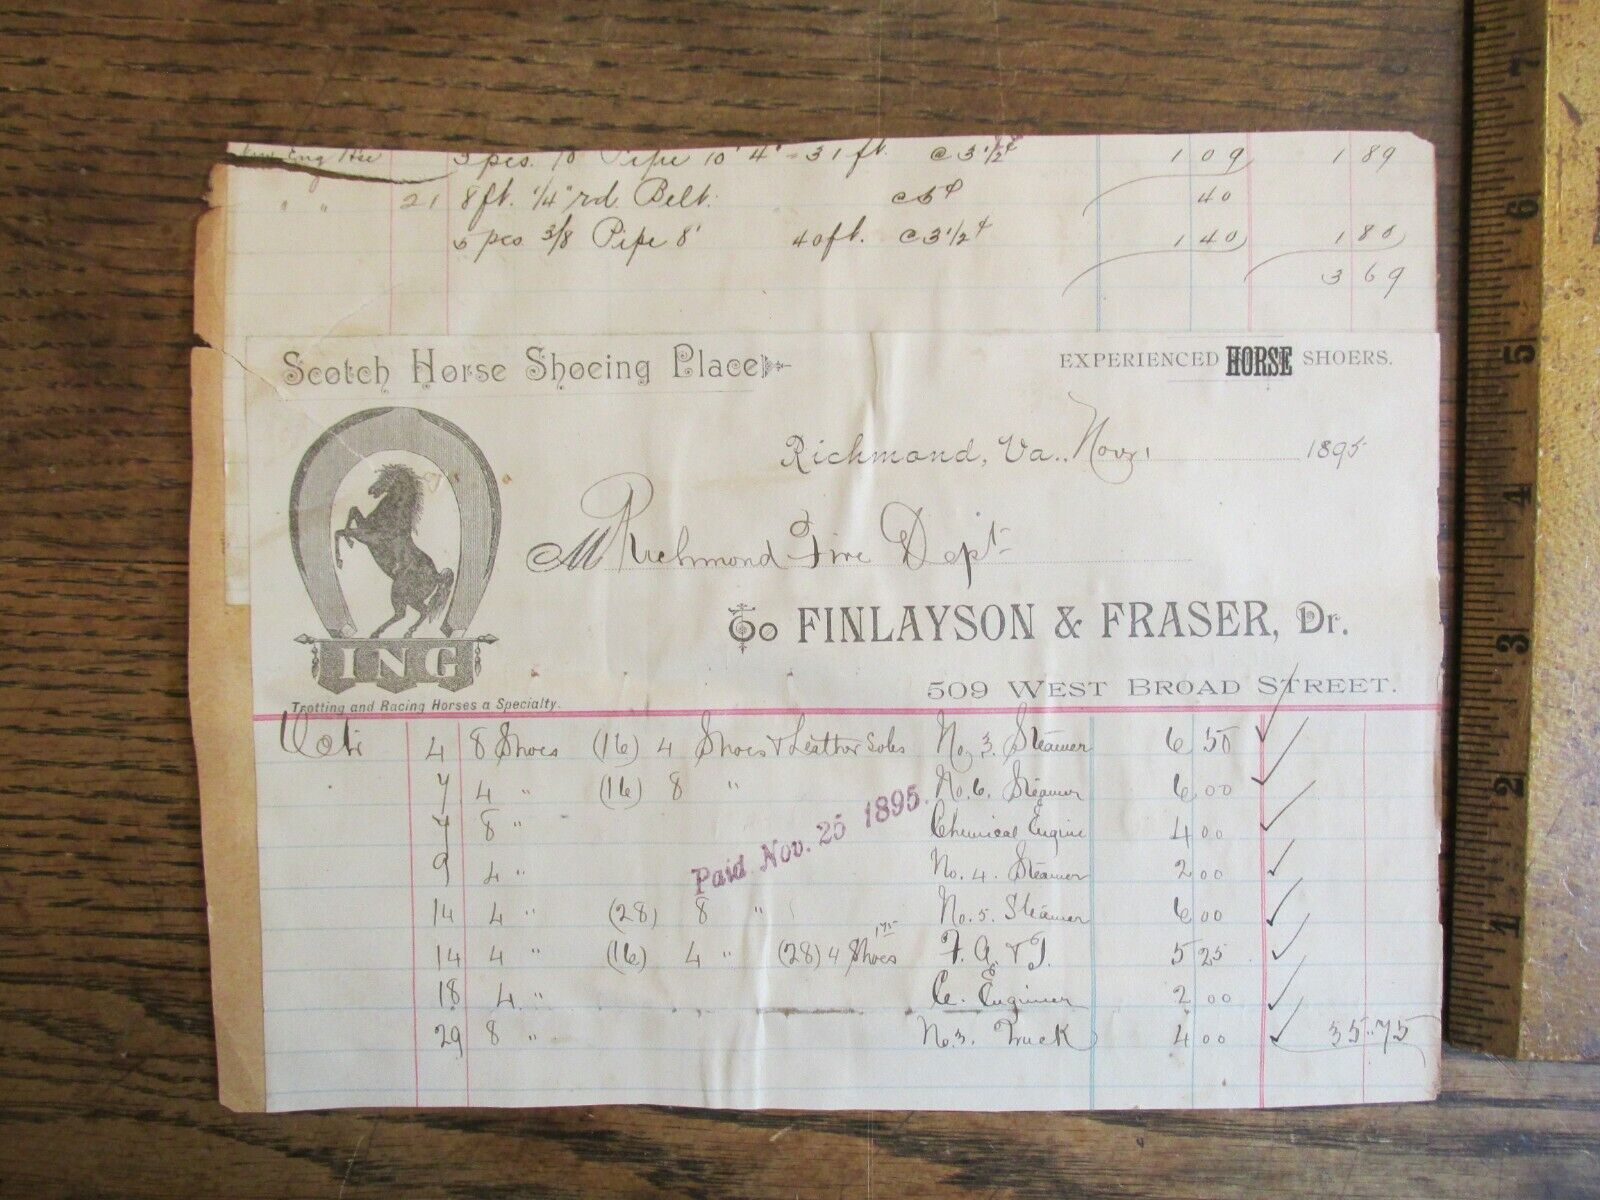 Eng Hse 5 pcs. Pipe 10' 4" = 31 ft. @ 3½¢ 1 09 1 89
" " 21 8 ft. ¼" rd. Belt. @ 5¢ 40
5 pcs 3/8 Pipe 8' 40 ft. @ 3½¢ 1 40 1 80
3 69
Scotch Horse Shoeing Place
EXPERIENCED HORSE SHOERS.
Richmond, Va., Nov 1 1895
M Richmond Fire Dept
To FINLAYSON & FRASER, Dr.
509 WEST BROAD STREET.
ING
Trotting and Racing Horses a Specialty.
Octr 4 8 Shoes (16) 4 Shoes & Leather Soles No. 3. Steamer 6 50
7 4 " (16) 8 " No. 6. Steamer 6 00
7 8 " Chemical Engine 4 00
9 4 " No. 4. Steamer 2 00
14 4 " (28) 8 " No. 5. Steamer 6 00
14 4 " (16) 4 " (28) 4 Shoes 1 75 F. A. & T. 5 25
18 4 " E. Engineer 2 00
29 8 " No. 3. Truck 4 00 35.75
Paid Nov. 25 1895.
7
6
5
4
3
2
1